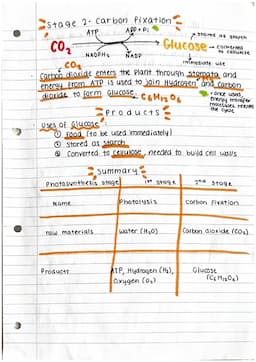 Stage 2- Carbon Fixation
ATP ADP + Pi
CO₂ → Glucose
→ stored as starch
→ converted to cellulose
→ immediate use
NADPH₂ NADP
CO₂
Carbon dioxide enters the plant through stomata and
energy from ATP is used to join Hydrogen and carbon
dioxide to form Glucose. C₆H₁₂O₆
once used,
energy transfer
molecules reenter
the cycle
Products
Uses of Glucose
① Food (to be used immediately)
② stored as starch
③ Converted to cellulose, needed to build cell walls
Summary
Photosynthesis stage 1st stage 2nd stage
Name Photolysis Carbon Fixation
raw materials water (H₂O) Carbon dioxide (CO₂)
Products ATP, Hydrogen (H₂), Glucose
Oxygen (O₂) (C₆H₁₂O₆)